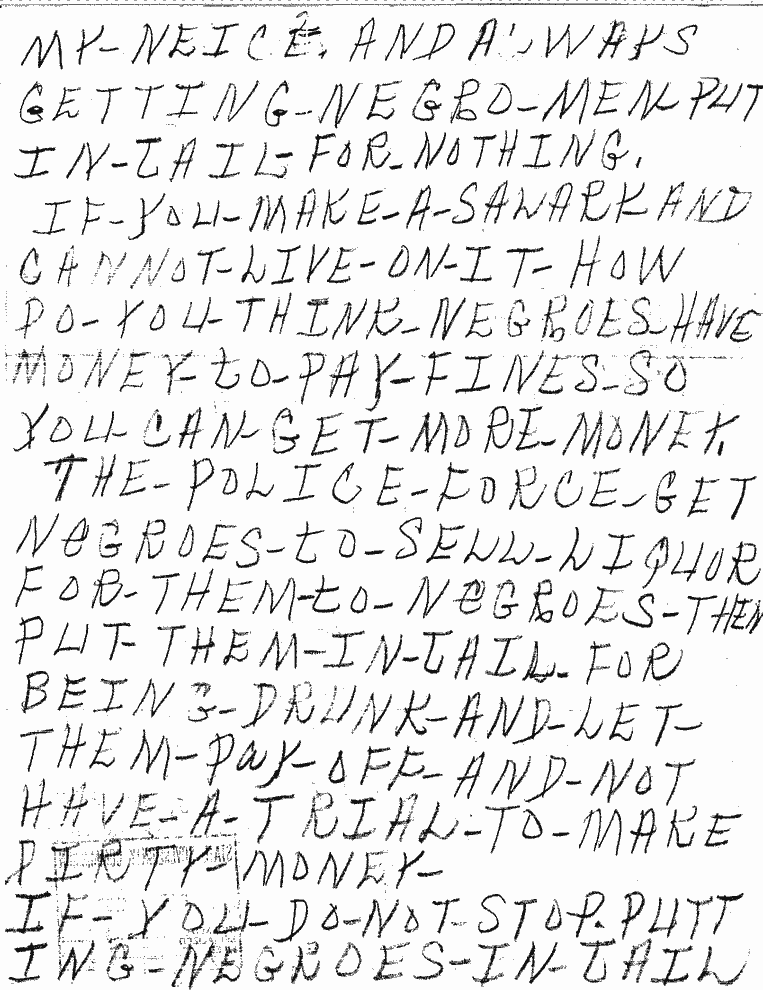 MY-NEICE. AND ALWAYS
GETTING-NEGRO-MEN-PUT
IN-JAIL-FOR-NOTHING.
IF-YOU-MAKE-A-SALARY AND
CANNOT-LIVE-ON-IT-HOW
DO-YOU-THINK-NEGROES-HAVE
MONEY-to-PAY-FINES-SO
YOU-CAN-GET-MORE-MONEY.
THE-POLICE-FORCE-GET
NeGROES-to-SELL-LIQUOR
FOR-THEM-to-NeGROES-THEN
PUT-THEM-IN-JAIL-FOR
BEING-DRUNK-AND-LET-
THEM-PaY-OFF-AND-NOT
HAVE-A-TRIAL-TO-MAKE
DIRTY-MONEY-
IF-YOU-DO-NOT-STOP.PUTT
ING-NEGROES-IN-JAIL